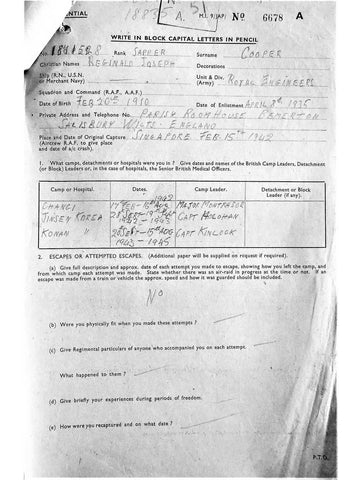 M.I. 9/(JAP) No 6678 A
WRITE IN BLOCK CAPITAL LETTERS IN PENCIL
No. Rank SAPPER Surname COOPER
Christian Names REGINALD JOSEPH Decorations
Ship (R.N., U.S.N. or Merchant Navy) Unit & Div. (Army) ROYAL ENGINEERS
Squadron and Command (R.A.F., A.A.F.)
Date of Birth FEB 20th 1910 Date of Enlistment APRIL 8th 1935
Private Address and Telephone No. PARISH ROOM HOUSE BEMERTON
SALISBURY WILTS - ENGLAND
Place and Date of Original Capture SINGAPORE FEB 15th 1942
(Aircrew R.A.F. to give place
and date of a/c crash).
1. What camps, detachments or hospitals were you in? Give dates and names of the British Camp Leaders, Detachment
(or Block) Leaders or, in the case of hospitals, the Senior British Medical Officers.
Camp or Hospital. Dates. Camp Leader. Detachment or Block Leader (if any).
CHANGI 1942 MAJOR
JINSEN KOREA CAPT
KONAN " 1943-1945 CAPT KINLOCK
2. ESCAPES OR ATTEMPTED ESCAPES. (Additional paper will be supplied on request if required).
(a) Give full description and approx. date of each attempt you made to escape, showing how you left the camp, and
from which camp each attempt was made. State whether there was an air-raid in progress at the time or not. If an
escape was made from a train or vehicle the approx. speed and how it was guarded should be included.
No
(b) Were you physically fit when you made these attempts?
(c) Give Regimental particulars of anyone who accompanied you on each attempt.
What happened to them?
(d) Give briefly your experiences during periods of freedom.
(e) How were you recaptured and on what date?
P.T.O.